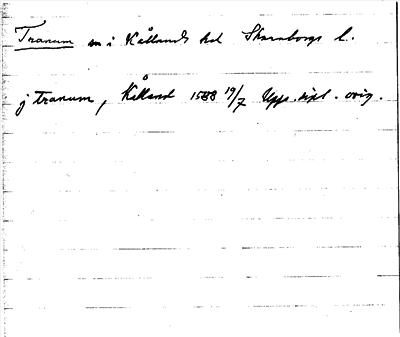 Tranum sn i Kållands hd Skaraborgs l.
j tranum, Kålland 1588 19/7 Upps. dipl. orig.